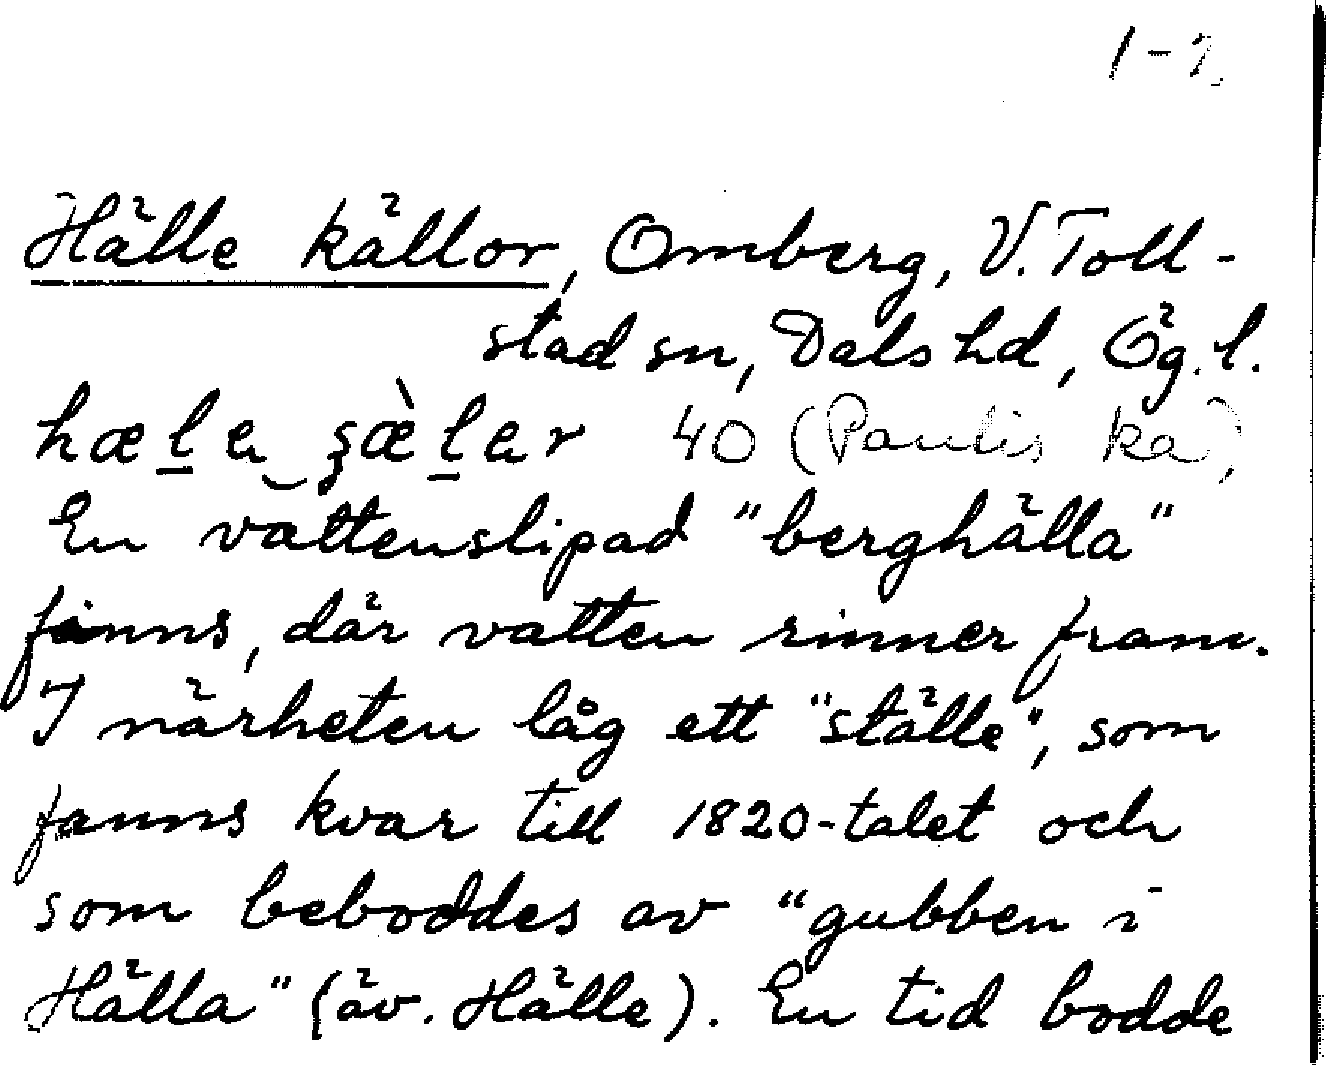 1-2
Hälle källor, Omberg, V. Toll-
stad sn, Dals hd, Ög. l.
hæḻe ʂæ̀ḻer 40 (Paulis ka),
En vattenslipad "berghälla"
finns, där vatten rinner fram.
I närheten låg ett "ställe", som
fanns kvar till 1820-talet och
som beboddes av "gubben i
Hälla" (äv. Hälle). En tid bodde